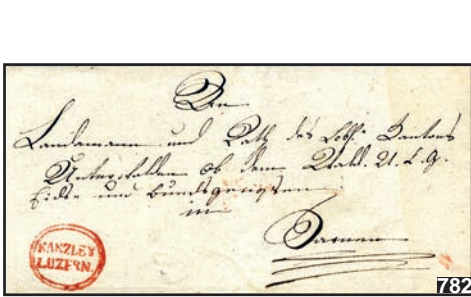 An
Landamann und Rath des Lobl. Kantons
Unterwalden ob dem Wald. U. L. G.
Eids- und Bundsgenossen
in
Sarnen
KANZLEY
LUZERN.
782